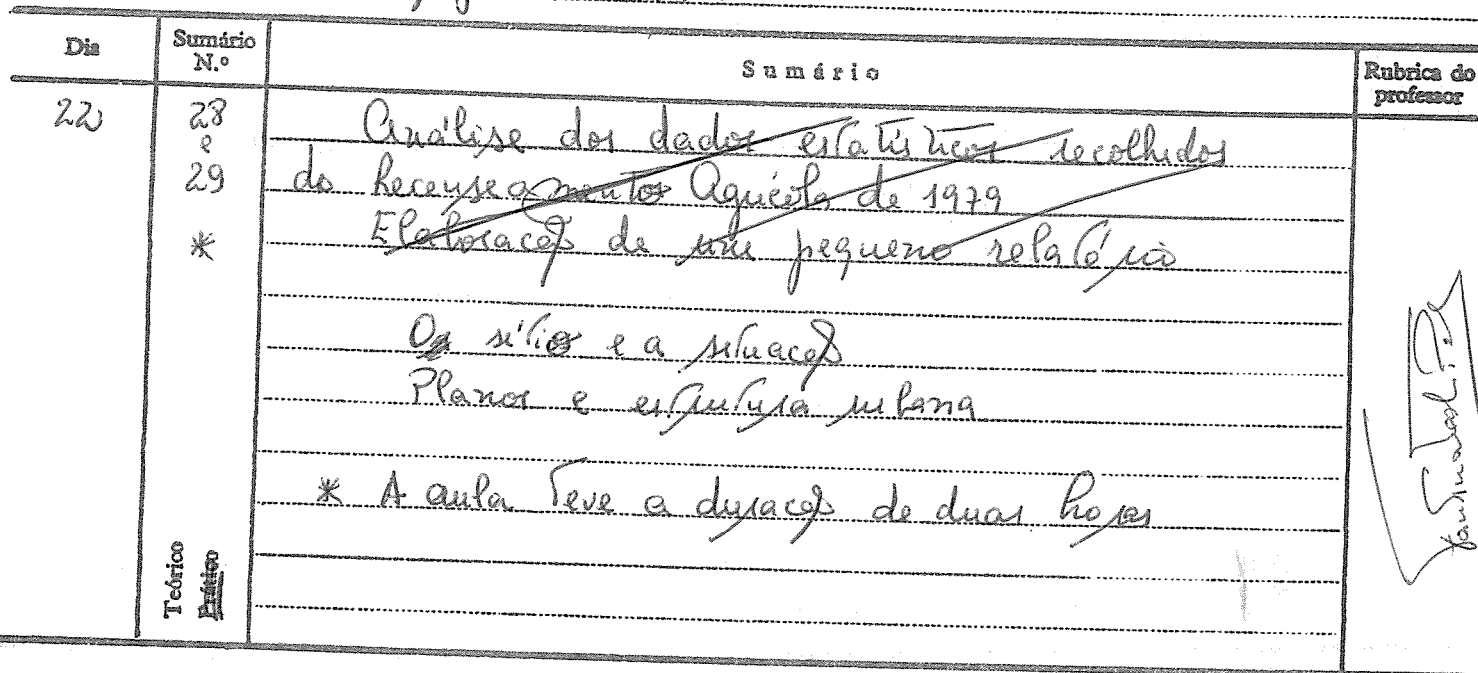 Dia
Sumário N.º
Sumário
Rubrica do professor
22
28 e 29
*
Análise dos dados estatísticos recolhidos
do Recenseamento Agrícola de 1979
Elaboração de um pequeno relatório
O sítio e a situação
Planos e estrutura urbana
* A aula teve a duração de duas horas
Teórico
Prático